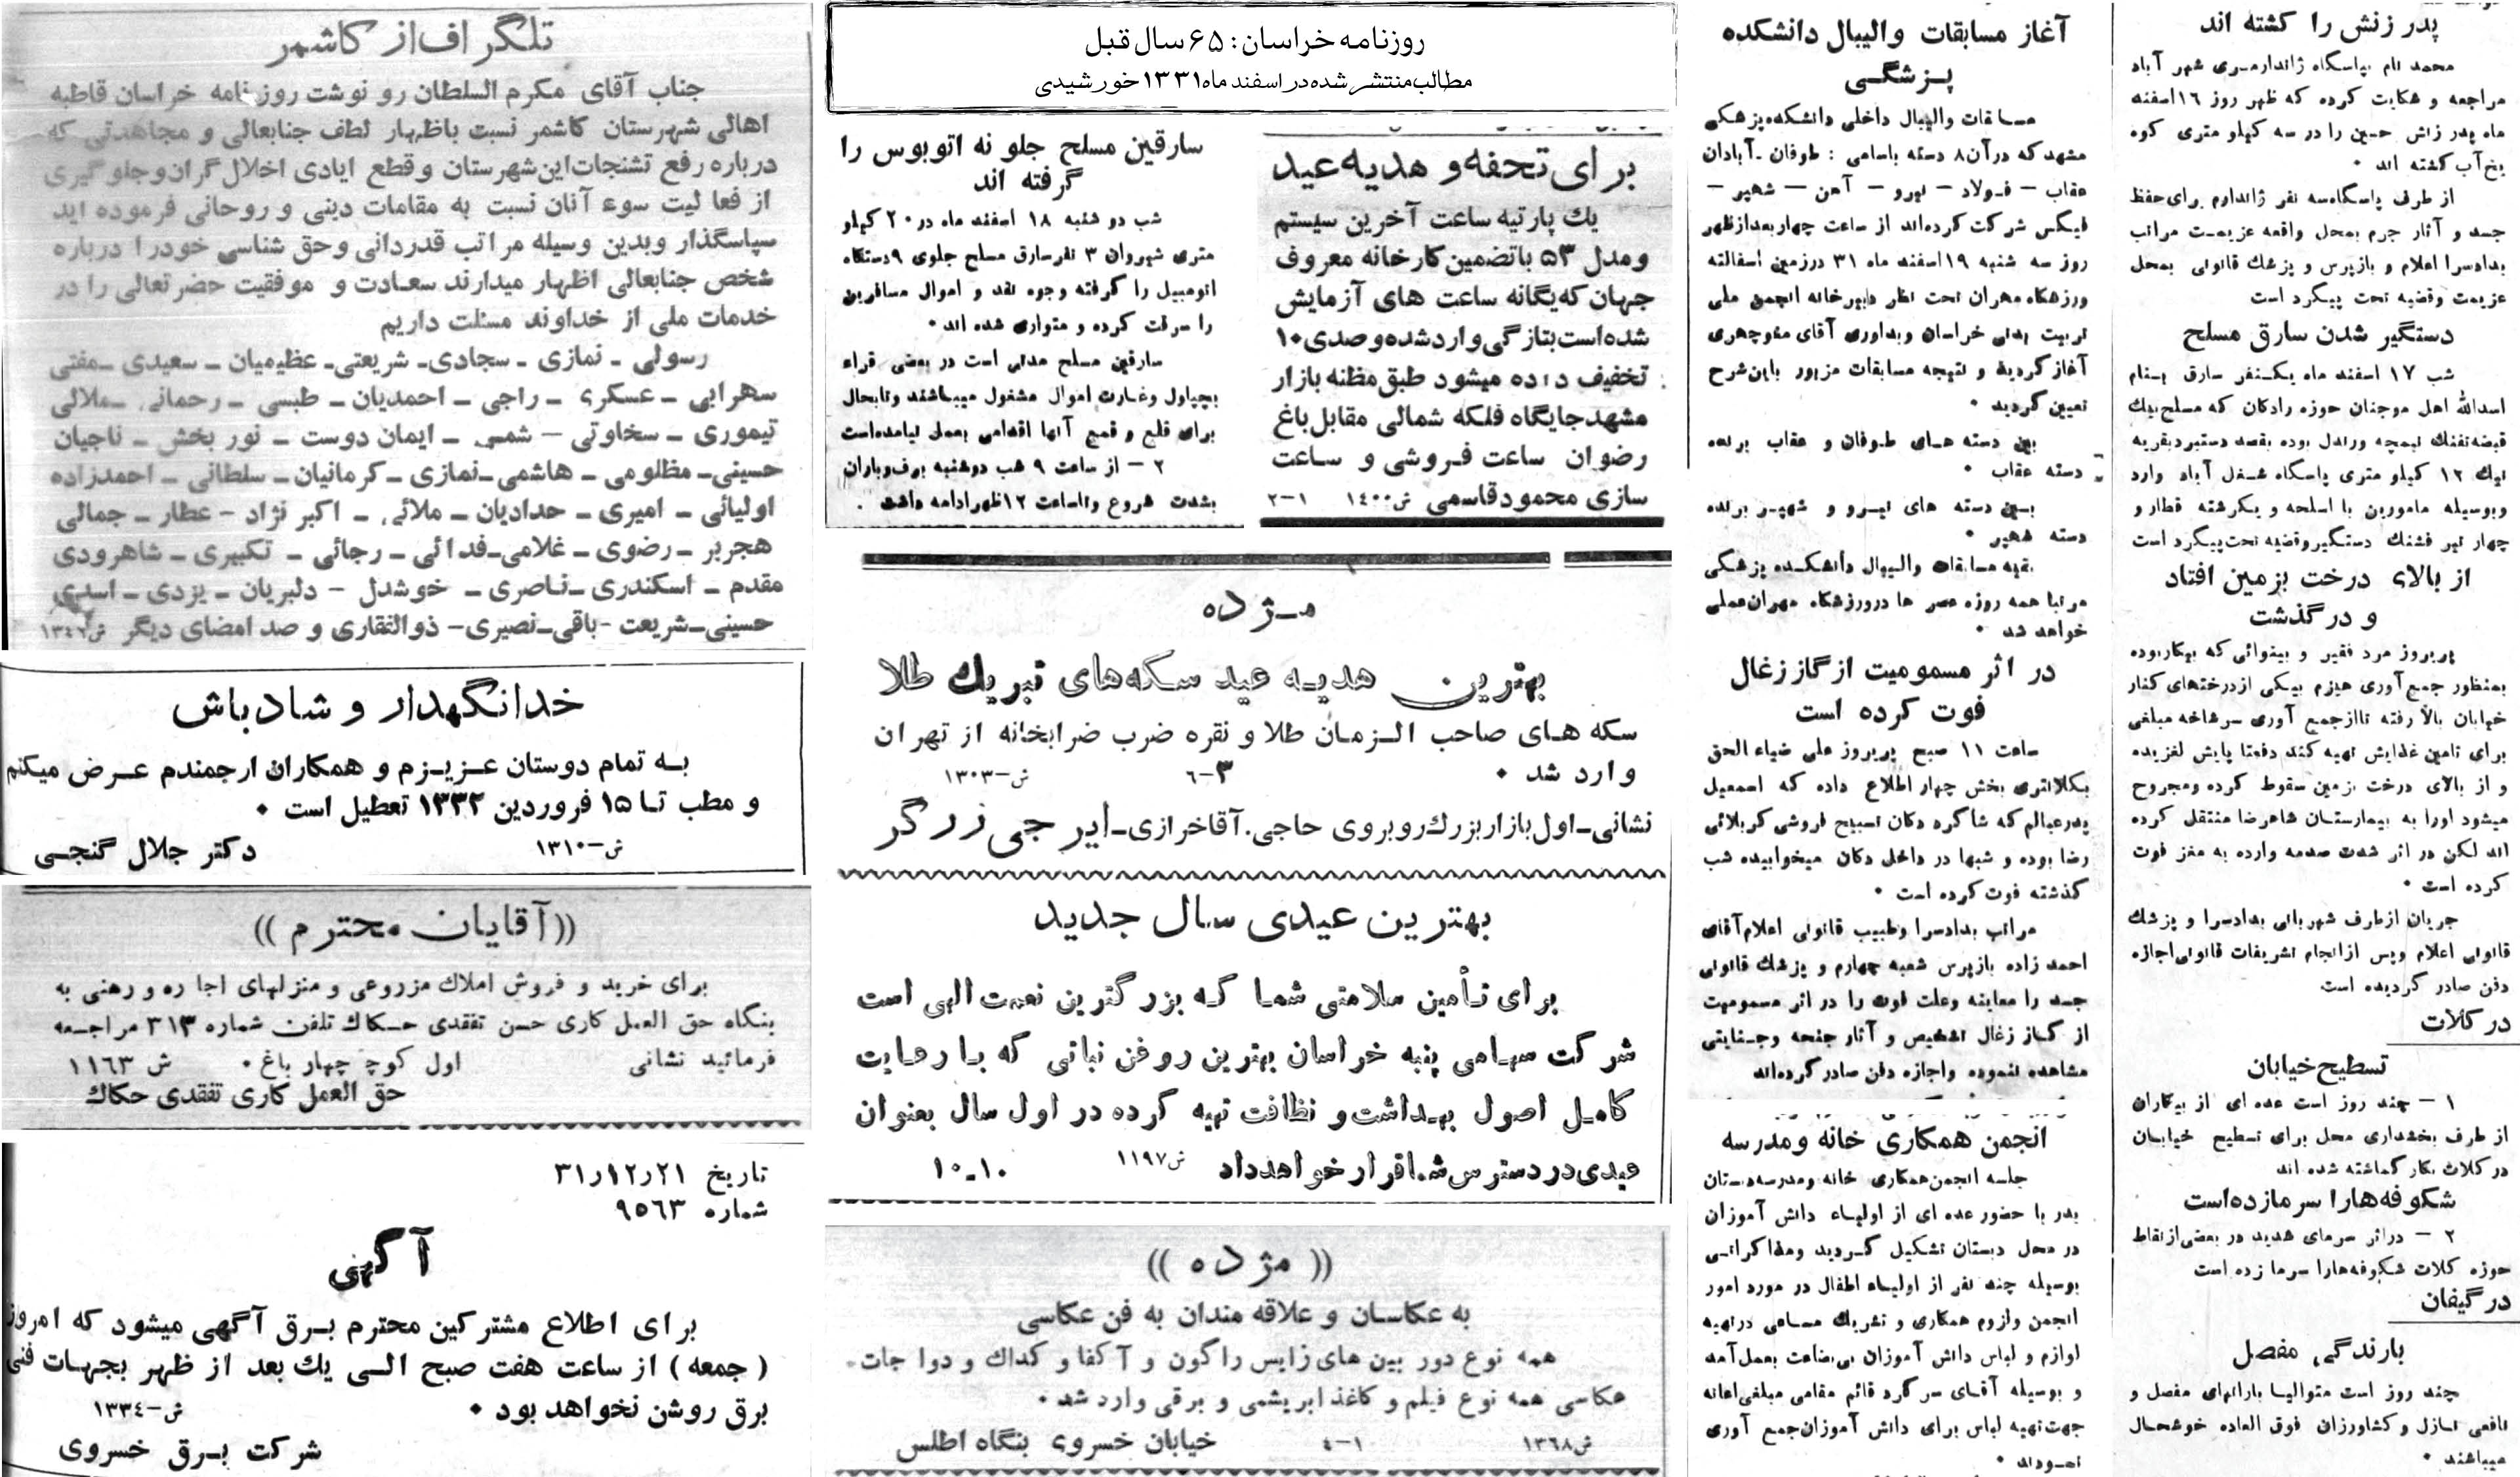 روزنامه خراسان: ۶۵ سال قبل
مطالب منتشر شده در اسفند ماه ۱۳۳۱ خورشیدی
پدر زنش را کشته اند
محمد نام بپاسگاه ژاندارمری شهر آباد
مراجعه و شکایت کرده که ظهر روز ۱۶اسفنه
ماه پدر زنش حسین را در سه کیلو متری کوه
یخ آب کشته اند ۰
از طرف پاسگاه سه نفر ژاندارم برای حفظ
جسد و آثار جرم بمحل واقعه عزیمت مراتب
بدادسرا اعلام و بازپرس و پزشك قانونی بمحل
عزیمت وقضیه تحت پیگرد است
دستگیر شدن سارق مسلح
شب ۱۷ اسفند ماه یکنفر سارق بنام
اسدالله اهل موجنان حوزه رادکان که مسلح بیك
قبضه تفنك نیمچه ورندل بوده بقصد دستبرد بقریه
نیك ۱۲ کیلو متری پاسگاه شغل آباد وارد
وبوسیله مامورین با اسلحه و یکرشته قطار و
چهار تیر فشنك دستگیر وقضیه تحت پیگرد است
از بالای درخت بزمین افتاد
و در گذشت
پریروز مرد فقیر و بینوائی که بیکاربوده
بمنظور جمع آوری هیزم بیکی ازدرختهای کنار
خیابان بالا رفته تا ازجمع آوری سرشاخه مبلغی
برای تامین غذایش تهیه کند دفعتا پایش لغزیده
و از بالای درخت بزمین سقوط کرده ومجروح
میشود اورا به بیمارستان شاهرضا منتقل کرده
اند لکن در اثر شدت صدمه وارده به مغز فوت
کرده است ۰
جریان ازطرف شهربانی بدادسرا و پزشك
قانونی اعلام وپس ازانجام تشریفات قانونی اجازه
دفن صادر گردیده است
در کلات
تسطیح خیابان
۱ – چند روز است عده ای از بیکاران
از طرف بخشداری محل برای تسطیح خیابان
در کلات بکار گماشته شده اند
شکوفه هارا سرما زده است
۲ – دراثر سرمای شدید در بعضی ازنقاط
حوزه کلات شکوفه هارا سرما زده است
در گیفان
بارندگی مفصل
چند روز است متوالیا بارانهای مفصل و
نافعی نازل و کشاورزان فوق العاده خوشحال
میباشند ۰
آغاز مسابقات والیبال دانشکده
پزشگی
مسابقات والیبال داخلی دانشکده پزشکی
مشهد که در آن ۸ دسته باسامی : طوفان ـ آبادان
عقاب – فولاد – نیرو – آهن – شهپر –
فیکس شرکت کرده اند از ساعت چهاربعدازظهر
روز سه شنبه ۱۹اسفند ماه ۳۱ درزمین اسفالته
ورزشگاه مهران تحت نظر دبیرخانه انجمن ملی
تربیت بدنی خراسان وبداوری آقای منوچهری
آغاز گردید و نتیجه مسابقات مزبور باین شرح
تعیین گردید ۰
بین دسته های طوفان و عقاب برنده
دسته عقاب ۰
بین دسته های نیرو و شهپر برنده
دسته شهپر ۰
بقیه مسابقات والیبال دانشکده پزشکی
مرتبا همه روزه عصر ها درورزشگاه مهران عملی
خواهد شد ۰
در اثر مسمومیت از گاز زغال
فوت کرده است
ساعت ۱۱ صبح پریروز علی ضیاء الحق
بکلانتری بخش چهار اطلاع داده که اسمعیل
پدرعیالم که شاگرد دکان تسبیح فروشی کربلائی
رضا بوده و شبها در داخل دکان میخوابیده شب
گذشته فوت کرده است ۰
مراتب بدادسرا وطبیب قانونی اعلام آقای
احمد زاده بازپرس شعبه چهارم و پزشك قانونی
جسد را معاینه وعلت فوت را در اثر مسمومیت
از گاز زغال تشخیص و آثار جنحه وجنایتی
مشاهده ننموده واجازه دفن صادر کرده اند
انجمن همکاری خانه ومدرسه
جلسه انجمن همکاری خانه ومدرسه دبستان
بدر با حضور عده ای از اولیاء دانش آموزان
در محل دبستان تشکیل گردید ومذاکراتی
بوسیله چند نفر از اولیاء اطفال در مورد امور
انجمن ولزوم همکاری و تشریك مساعی درتهیه
لوازم و لباس دانش آموزان بی بضاعت بعمل آمد
و بوسیله آقای سرگرد قائم مقامی مبلغی اعانه
جهت تهیه لباس برای دانش آموزان جمع آوری
نمودند ۰
برای تحفه و هدیه عید
یك پارتیه ساعت آخرین سیستم
ومدل ۵۳ باتضمین کارخانه معروف
جهان که یگانه ساعت های آزمایش
شده است بتازگی وارد شده و صدی ۱۰
تخفیف داده میشود طبق مظنه بازار
مشهد جایگاه فلکه شمالی مقابل باغ
رضوان ساعت فروشی و ساعت
سازی محمود قاسمی ش ۱۴۰۰ ۱–۲
سارقین مسلح جلو نه اتوبوس را
گرفته اند
شب دو شنبه ۱۸ اسفند ماه در ۲۰ کیلو
متری شیروان ۳ نفرسارق مسلح جلوی ۹دستگاه
اتومبیل را گرفته وجوه نقد و اموال مسافرین
را سرقت کرده و متواری شده اند ۰
سارقین مسلح مدتی است در بعضی قراء
بچپاول وغارت اموال مشغول میباشند وتابحال
برای قلع و قمع آنها اقدامی بعمل نیامده است
۲ – از ساعت ۹ شب دوشنبه برف وباران
بشدت شروع وتاساعت ۱۲ظهر ادامه داشت .
مـژده
بهترین هدیه عید سکه های تبریك طلا
سکه های صاحب الزمان طلا و نقره ضرب ضرابخانه از تهران
وارد شد ۰ ۳–۶ ش–۱۳۰۳
نشانی ـ اول بازار بزرك روبروی حاجی . آقا خرازی ـ ایرجی زرگر
بهترین عیدی سال جدید
برای تأمین سلامتی شما که بزرگترین نعمت الهی است
شرکت سهامی پنبه خراسان بهترین روغن نباتی که با رعایت
کامل اصول بهداشت و نظافت تهیه کرده در اول سال بعنوان
عیدی در دسترس شما قرار خواهد داد ش ۱۱۹۷ ۱۰ـ۱۰
(( مژده ))
به عکاسان و علاقه مندان به فن عکاسی
همه نوع دور بین های زایس راگون و آکفا و کداك و دوا جات
عکاسی همه نوع فیلم و کاغذ ابریشمی و برقی وارد شد ۰
ش ۱۳۶۸ ۱–۴ خیابان خسروی بنگاه اطلس
تلگراف از کاشمر
جناب آقای مکرم السلطان رو نوشت روزنامه خراسان قاطبه
اهالی شهرستان کاشمر نسبت باظهار لطف جنابعالی و مجاهدتی که
درباره رفع تشنجات این شهرستان و قطع ایادی اخلال گران و جلوگیری
از فعا لیت سوء آنان نسبت به مقامات دینی و روحانی فرموده اید
سپاسگذار وبدین وسیله مراتب قدردانی وحق شناسی خودرا درباره
شخص جنابعالی اظهار میدارند سعادت و موفقیت حضرتعالی را در
خدمات ملی از خداوند مسئلت داریم
رسولی ـ نمازی ـ سجادی ـ شریعتی ـ عظیمیان ـ سعیدی ـ مفتی
سهرابی ـ عسکری ـ راجی ـ احمدیان ـ طبسی ـ رحمانی ـ ملالی
تیموری ـ سخاوتی – شمس ـ ایمان دوست ـ نور بخش ـ ناجیان
حسینی ـ مظلومی ـ هاشمی ـ نمازی ـ کرمانیان ـ سلطانی ـ احمدزاده
اولیائی ـ امیری ـ حدادیان ـ ملائی ـ اکبر نژاد – عطار ـ جمالی
هجربر ـ رضوی ـ غلامی ـ فدائی ـ رجائی ـ تکبیری ـ شاهرودی
مقدم ـ اسکندری ـ ناصری ـ خوشدل – دلبریان ـ یزدی ـ اسدی
حسینی ـ شریعت – باقی ـ نصیری – ذوالفقاری و صد امضای دیگر ش ۱۳٤٦
خدانگهدار و شادباش
به تمام دوستان عزیزم و همکاران ارجمندم عرض میکنم
و مطب تا ۱۵ فروردین ۱۳۳۲ تعطیل است ۰
ش–۱۳۱۰ دکتر جلال گنجی
((آقایان محترم))
برای خرید و فروش املاك مزروعی و منزلهای اجا ره و رهنی به
بنگاه حق العمل کاری حسن تفقدی حکاك تلفن شماره ۳۱۳ مراجعه
فرمائید نشانی اول کوچ چهار باغ ۰ ش ۱۱٦۳
حق العمل کاری تفقدی حکاك
تاریخ ۲۱ر۱۲ر۳۱
شماره ۹۵٦۳
آگهی
برای اطلاع مشترکین محترم برق آگهی میشود که امروز
( جمعه ) از ساعت هفت صبح الی یك بعد از ظهر بجهات فنی
برق روشن نخواهد بود ۰ ش–۱۳۳٤
شرکت برق خسروی